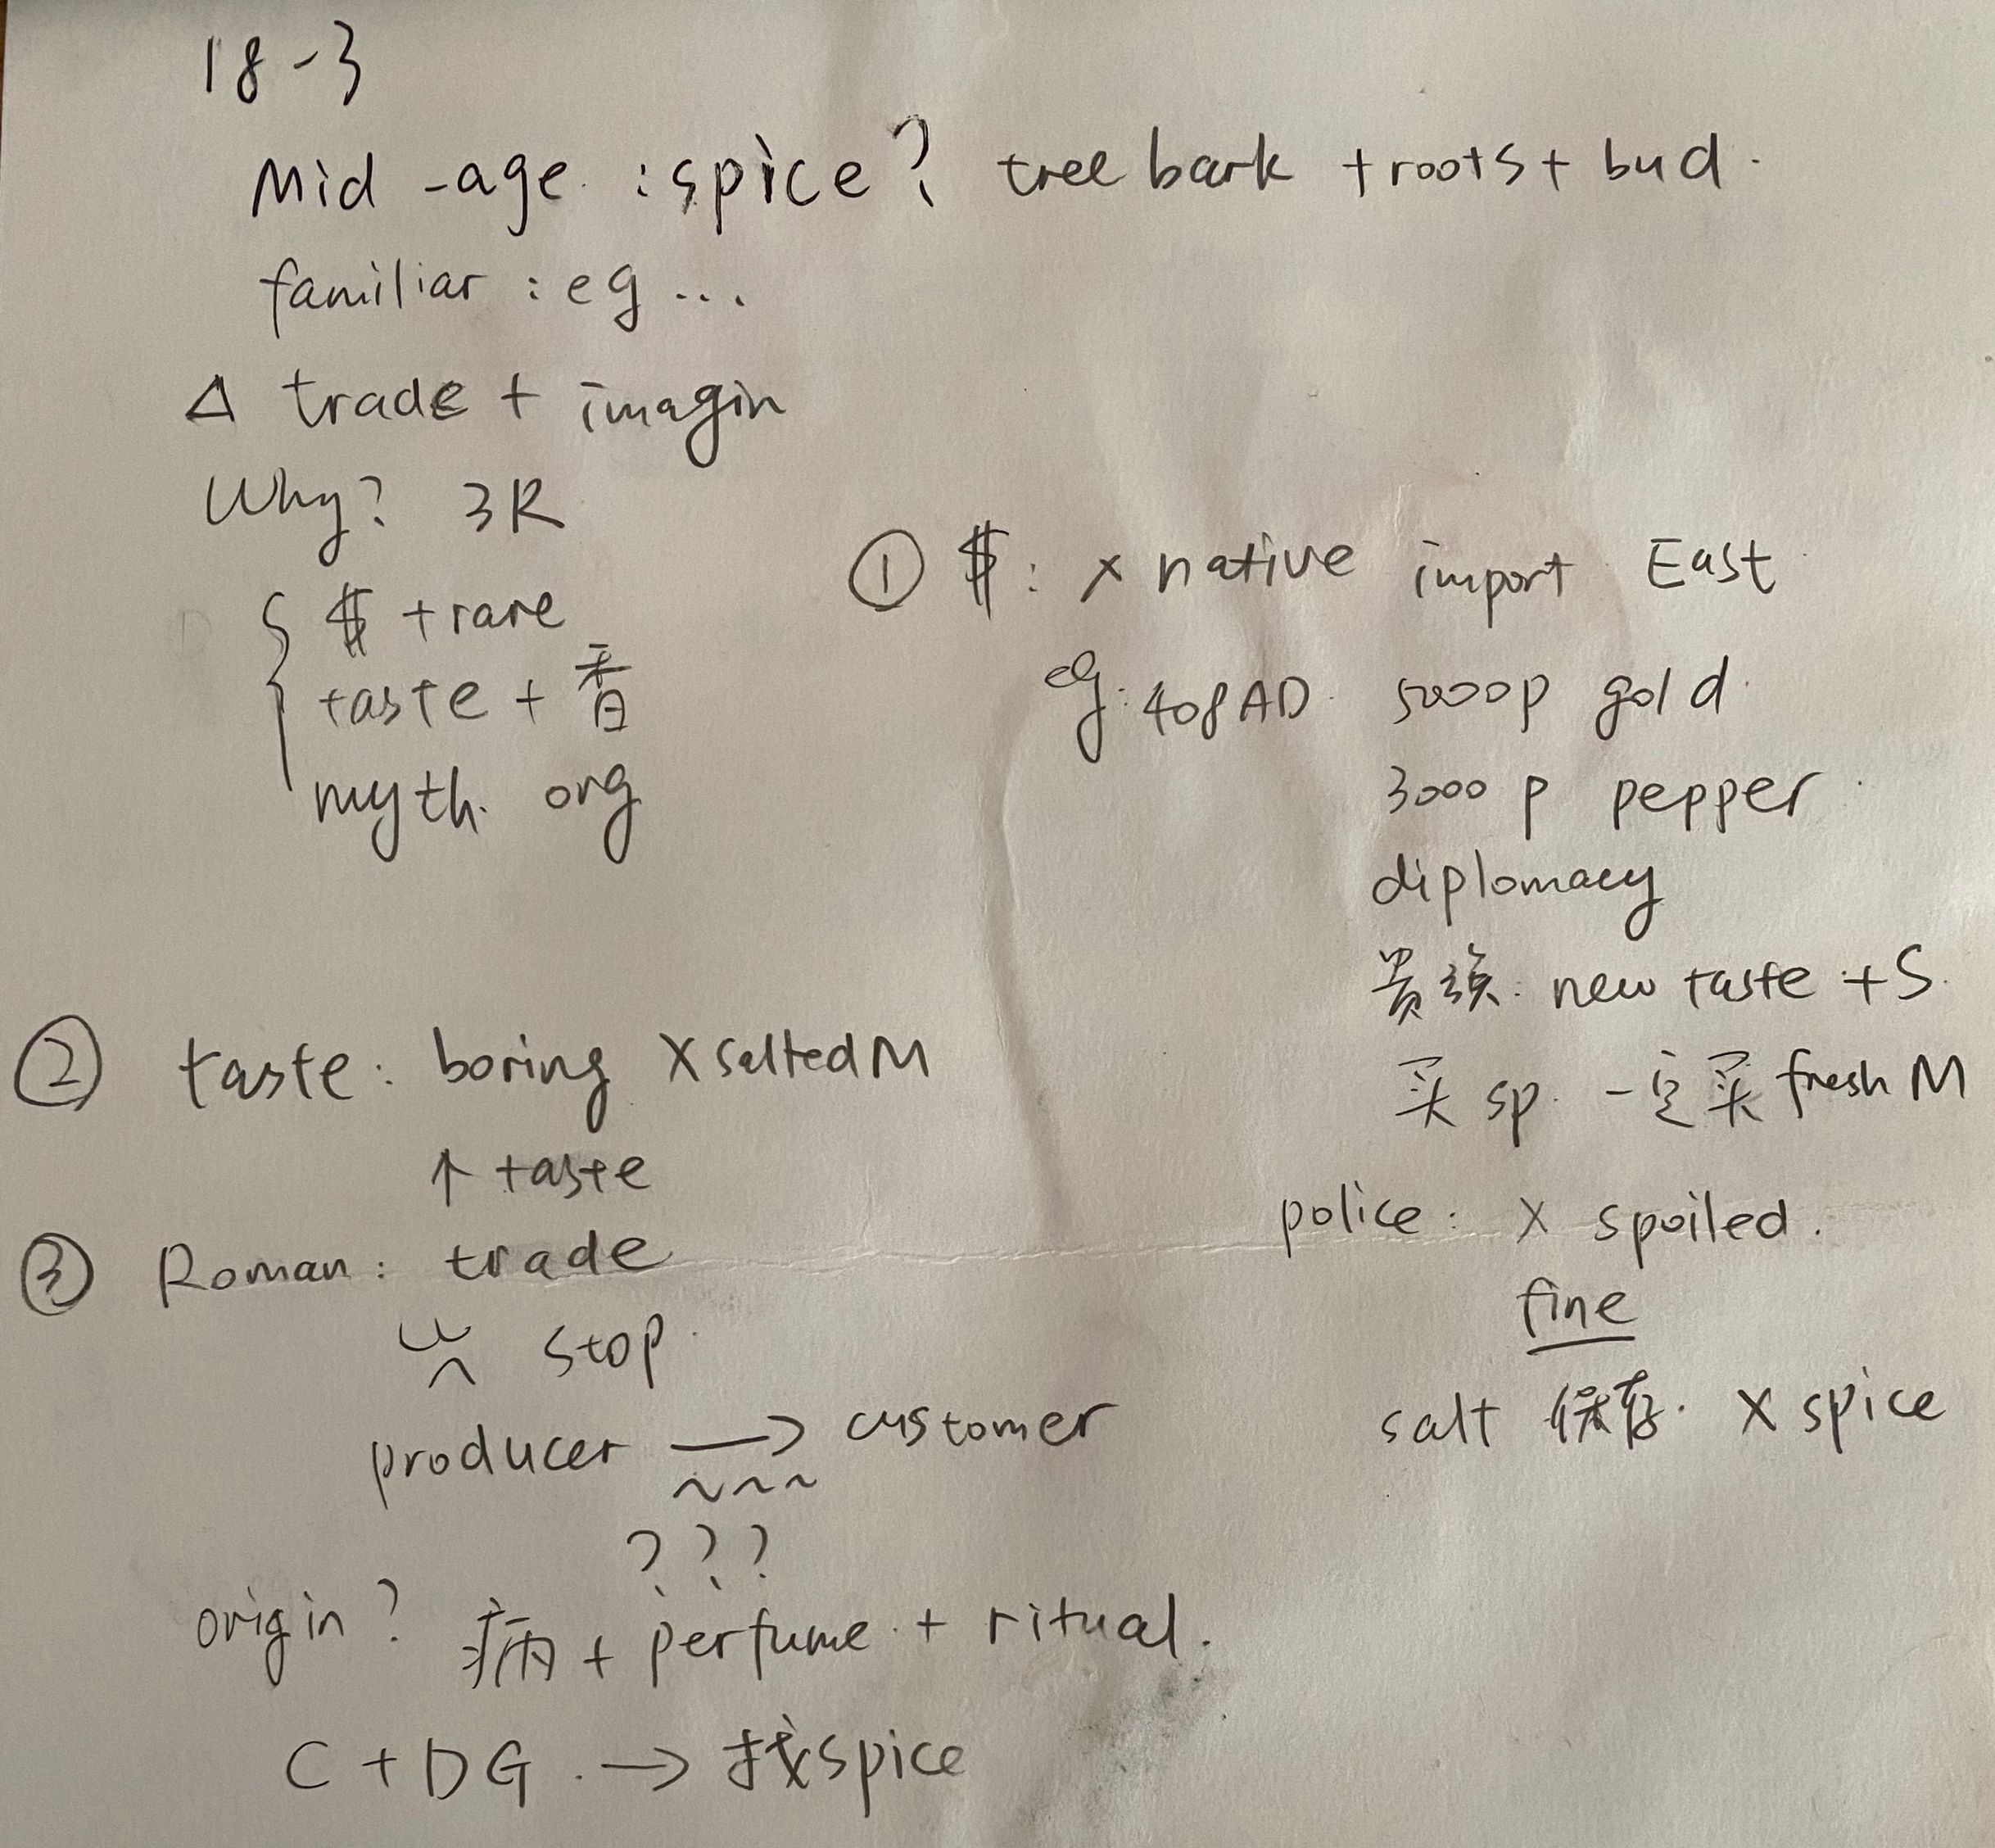 18-3
Mid-age : spice? tree bark + roots + bud.
familiar : eg ...
Δ trade + imagin
Why? 3R
$ + rare
taste + 香
myth. org
① $: x native import East
eg: 408AD 5000p gold
3000 p pepper
diplomacy
贵族: new taste + S.
买 sp. 一定买 fresh M
police: x spoiled.
fine
salt 保存. x spice
② taste: boring x salted M
↑ taste
③ Roman: trade
stop.
producer → customer
???
origin? 病 + perfume + ritual.
C + DG. → 找spice